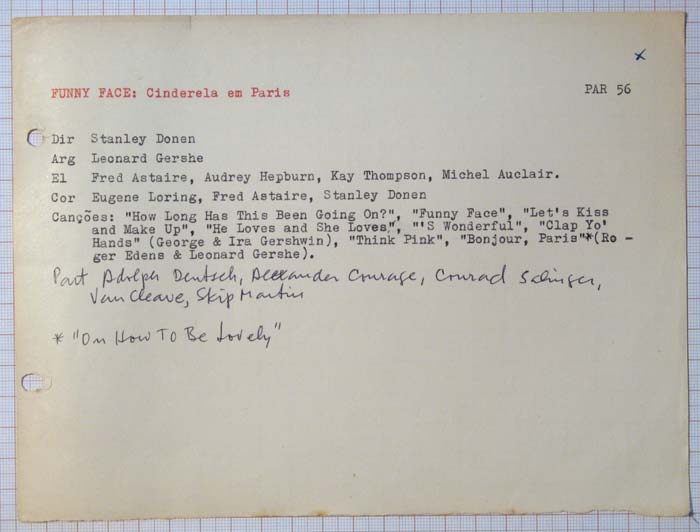 x
FUNNY FACE: Cinderela em Paris PAR 56
Dir Stanley Donen
Arg Leonard Gershe
El Fred Astaire, Audrey Hepburn, Kay Thompson, Michel Auclair.
Cor Eugene Loring, Fred Astaire, Stanley Donen
Canções: "How Long Has This Been Going On?", "Funny Face", "Let's Kiss
and Make Up", "He Loves and She Loves", "'S Wonderful", "Clap Yo'
Hands" (George & Ira Gershwin), "Think Pink", "Bonjour, Paris"*(Ro -
ger Edens & Leonard Gershe).
Part Adolph Deutsch, Alexander Courage, Conrad Salinger,
Van Cleave, Skip Martin
* "On How To Be Lovely"